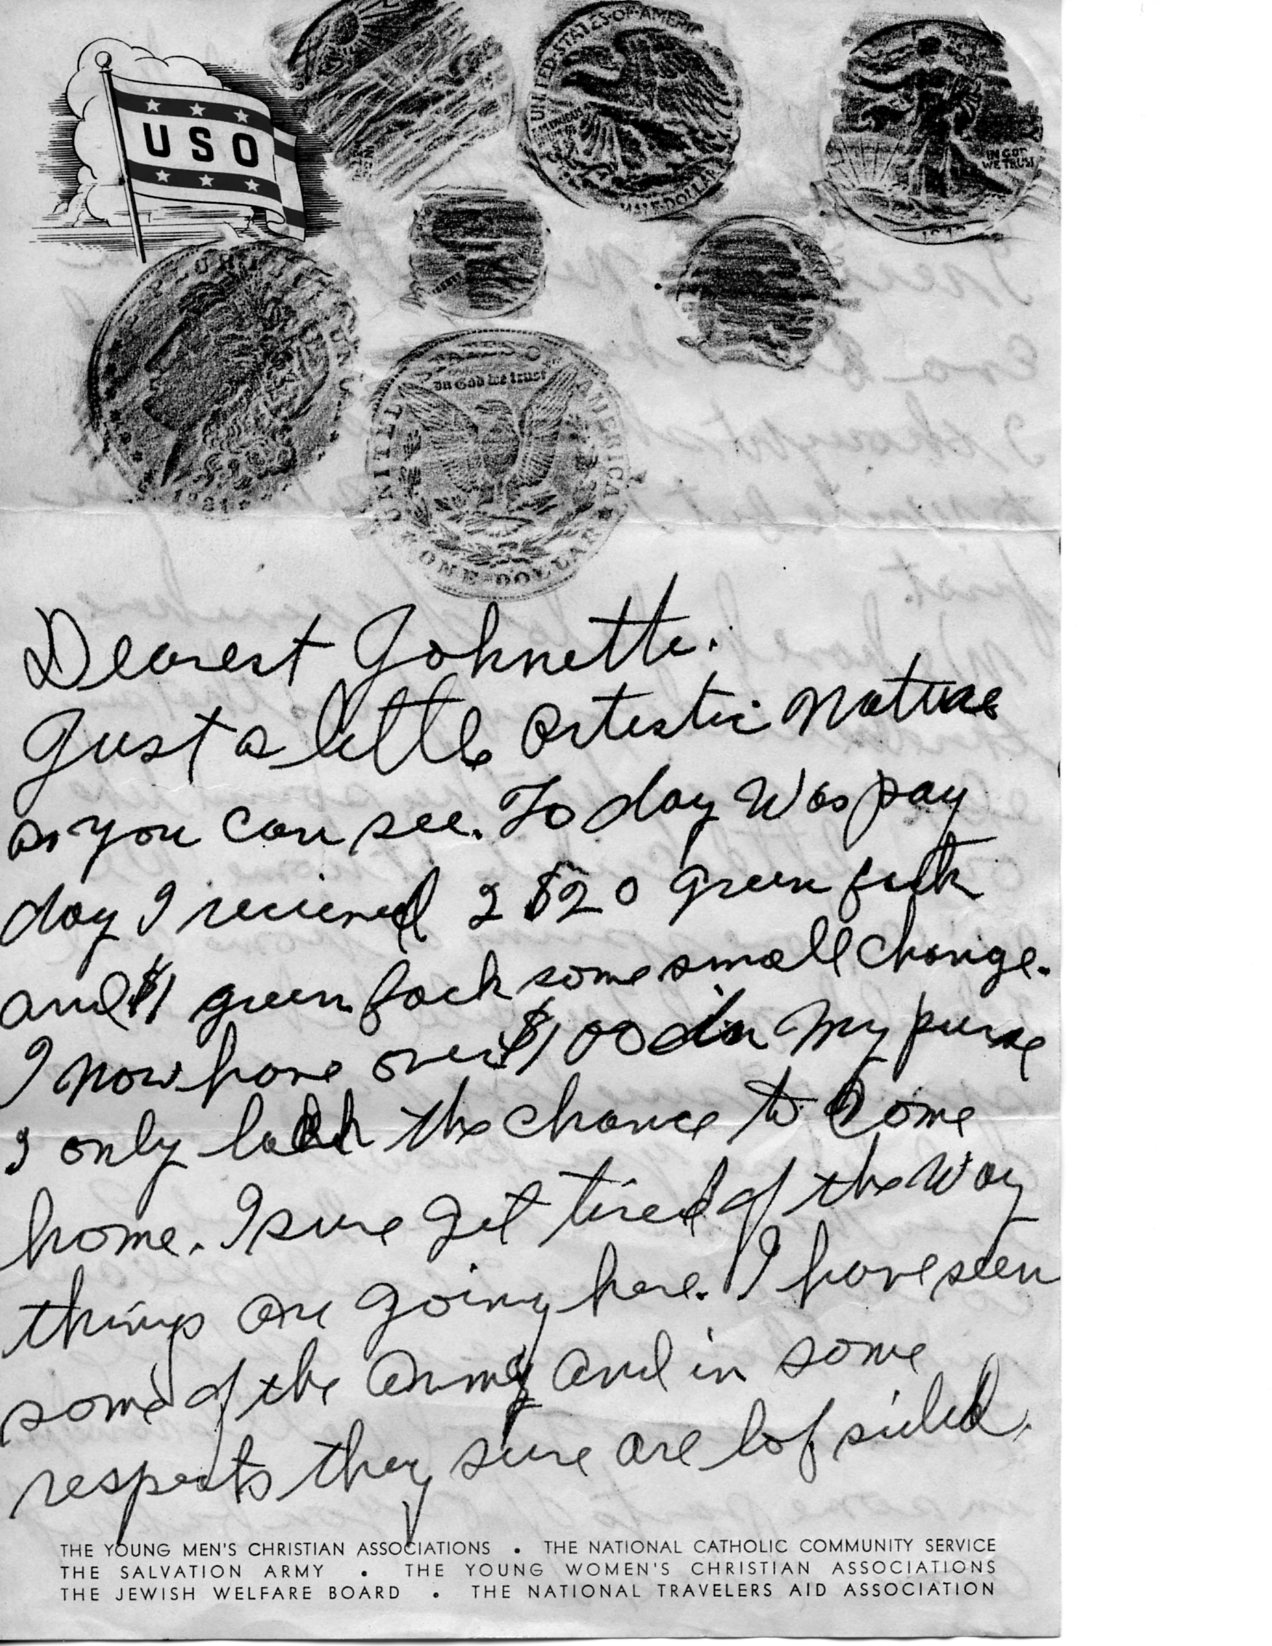 USO
UNITED·STATES·OF·AMERIC
HALF·DOLLAR
IN GOD
WE TRUST
In God we trust
UNITED STATES OF AMERICA
ONE·DOLLAR
Dearest Johnette.
Just a little artistic nature
as you can see. To day was pay
day I recieved 2 $20 green back
and $1 green back some small change.
I now have over $100 in my purse
I only lack the chance to come
home. I sure get tired of the way
things are going here. I have seen
some of the army and in some
respects they sure are lop sided.
THE YOUNG MEN'S CHRISTIAN ASSOCIATIONS • THE NATIONAL CATHOLIC COMMUNITY SERVICE
THE SALVATION ARMY • THE YOUNG WOMEN'S CHRISTIAN ASSOCIATIONS
THE JEWISH WELFARE BOARD • THE NATIONAL TRAVELERS AID ASSOCIATION